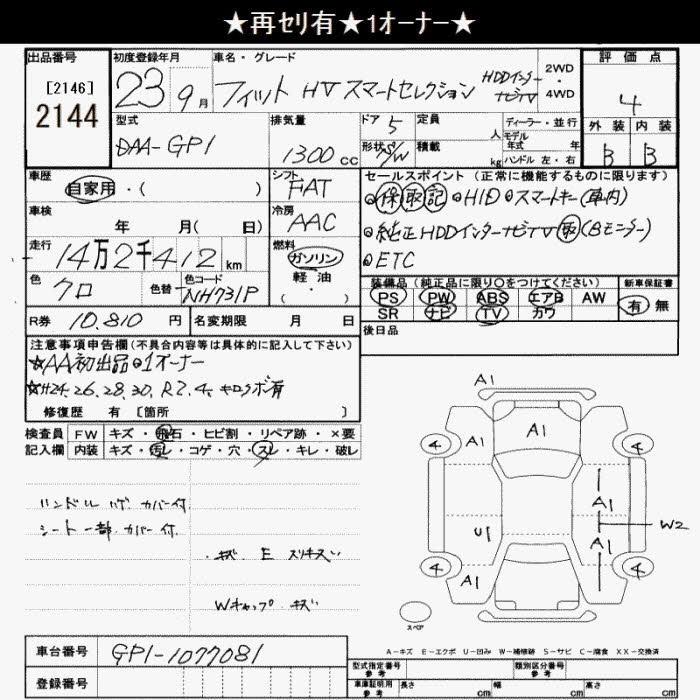 ★再セリ有★1オーナー★
出品番号 初度登録年月 車名・グレード 評価点
[2146]
2144
23年 9月 フィット HV スマートセレクション HDDインター ナビTV 2WD 4WD
4
型式 排気量 ドア 5 定員 人 ディーラー・並行
外装 内装
DAA-GP1 1300 cc 形状 S/W 積載 kg モデル年式 年 ハンドル 左・右
B B
車歴 シフト セールスポイント (正常に機能するものに限ります)
自家用・( ) FAT ●保取記 ●HID ●スマートキー(車内)
車検 年 月(日) 冷房 AAC
●純正HDDインターナビTV取(Bモニター)
走行 14万2千412km 燃料 ガソリン・軽油・( )
●ETC
色 クロ 色替 色コード NH731P
装備品 (純正品に限り○をつけてください) 新車保証書
PS PW ABS エアB AW 有 無
SR ナビ TV カワ
R券 10,810円 名変期限 月 日 後日品
注意事項申告欄(不具合内容等は具体的に記入して下さい)
☆AA初出品●1オーナー
☆H24.26.28.30.R2.4.キロクボ有
修復歴 有 [箇所 ]
検査員 FW キズ・飛石・ヒビ割・リペア跡・×要
記入欄 内装 キズ・汚レ・コゲ・穴・スレ・キレ・破レ
ハンドル ハゲ カバー付
シート一部 カバー付
キズ E スリキズ
Wキャップ キズ
A1
4 A1 A1 4
A1
U1 W2
A1
4 A1 4
スペア
A-キズ E-エクボ U-凹み W-補修跡 S-サビ C-腐食 XX-交換済
車台番号 GP1-1077081
型式指定番号 参考 類別区分番号 参考
登録番号 車庫証明用 参考 長さ cm 幅 cm 高さ cm